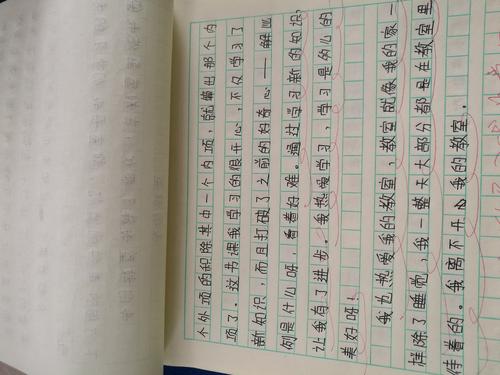 个外项的积除其中一个内项，就算出那个内
项了。这节课我学习的很开心，不仅学习了
新知识，而且打破了之前的好奇心——解比
例是什么呀，看着好难。通过学习新的知识，
让我有了进步。我热爱学习，学习是的心的
美好呀！
我也热爱我的教室，教室就像我的家一
样除了睡觉，我一整天大部分都是在教室里
待着的。我离不开我的教室。